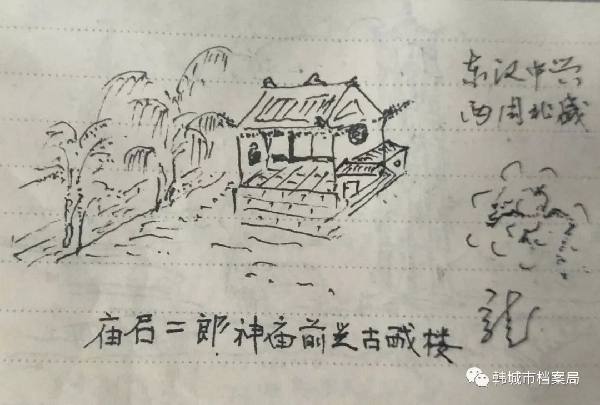 东汉中兴
西周
龍
庙后二郎神庙前古戏楼
韩城市档案局